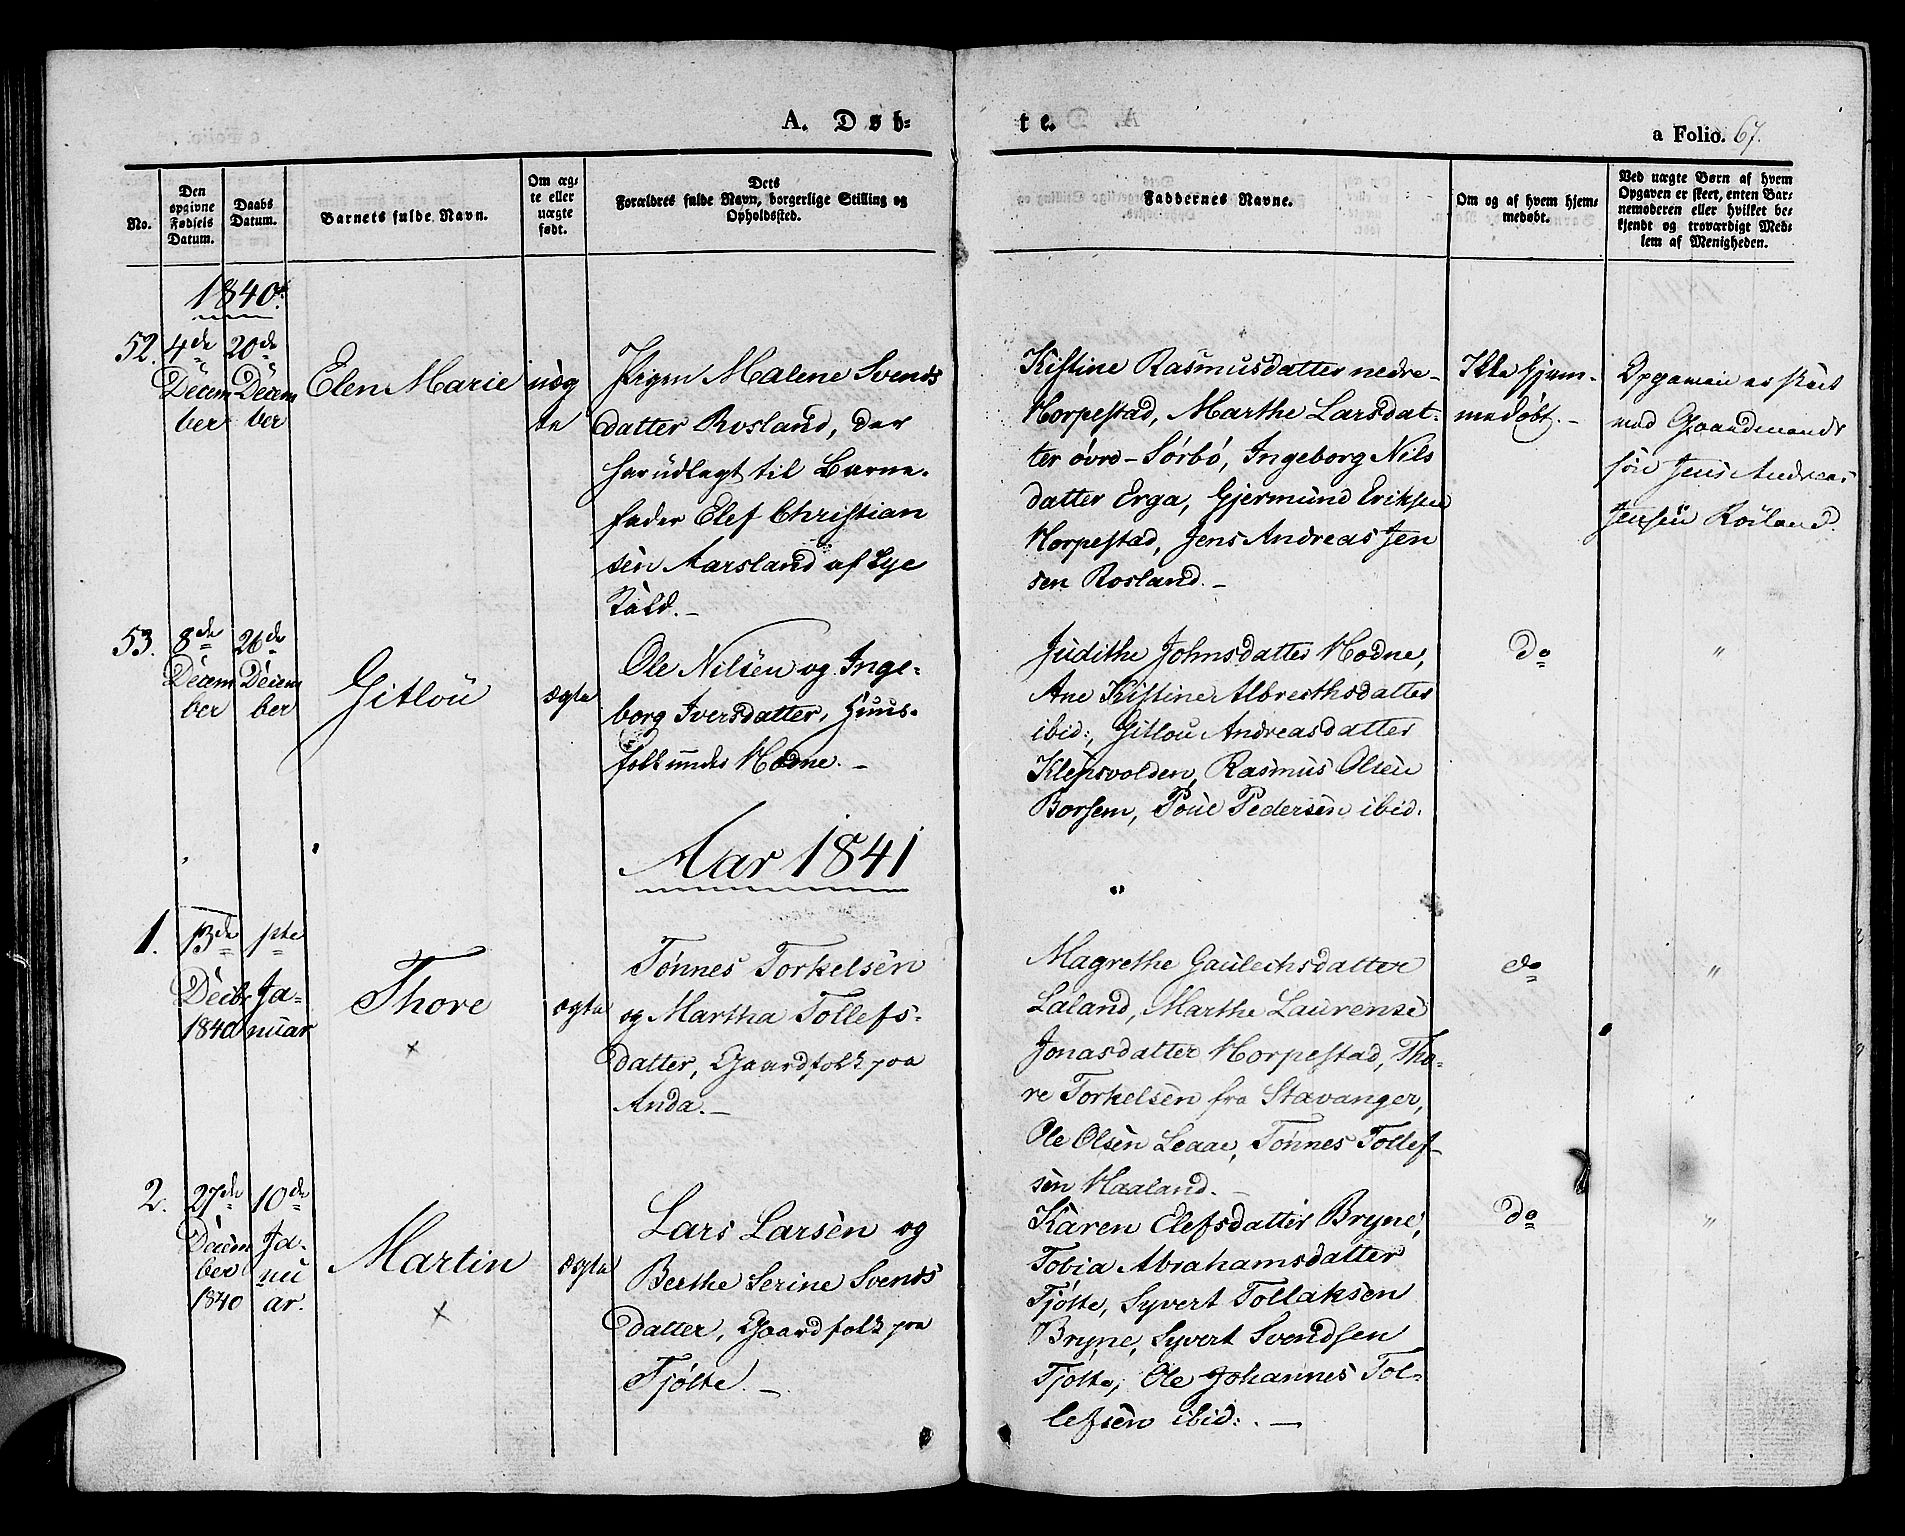 A. Døb-
te.
a Folio. 67.
No.
Den opgivne Fødsels Datum.
Daabs Datum.
Barnets fulde Navn.
Om ægte eller uægte født.
Dets Forældres fulde Navn, borgerlige Stilling og Opholdssted.
Faddernes Navne.
Om og af hvem hjemmedøbt.
Ved uægte Børn af hvem Opgaven er skeet, enten Barnemoderen eller hvilket bekjendt og troværdigt Medlem af Menigheden.
1840.
52.
4de Decem
ber
20de Decem
ber
Elen Marie
uæg
te
Pigen Malene Svends
datter Rosland, der
har udlagt til Barne-
fader Elef Christian
sen Aarsland af Lye
Kald. -
Kistine Rasmusdatter nedre-
Horpestad, Marthe Larsdat-
ter øvre-Sørbø, Ingeborg Nils
datter Erga, Gjermund Eriksen
Horpestad, Jens Andreas Jen
sen Rosland. -
Ikke hjem-
medøbt. -
Opgaven er skeet
ved Gaardmands
søn Jens Andreas
Jensen Rosland.
53.
8de
Decem
ber
26de
Decem
ber
Gitlou
ægte
Ole Nilsen og Inge-
borg Iversdatter, Huus-
folk under Hodne. -
Judithe Johnsdatter Hodne,
Ane Kistine Albrecthsdatter
ibid:, Gitlou Andreasdatter
Klepsvolden, Rasmus Olsen
Borsem, Poul Pedersen ibid.
do
"
Aar 1841
"
1.
13de
Decbr
1840
1ste
Ja-
nuar
Thore
ægte
Tønnes Torkelsen
og Martha Tollefs-
datter, Gaardfolk paa
Anda. -
Magrethe Gaulechsdatter
Laland, Marthe Laurense
Jonasdatter Horpestad, Tho-
re Torkelsen fra Stavanger,
Ole Olsen Leaae, Tønnes Tollef-
sen Haaland. -
do
"
2.
27de
Decem
ber
1840
10de
Ja-
nu
ar.
Martin
ægte
Lars Larsen og
Berthe Serine Svends
datter, Gaardfolk paa
Tjøtte. -
Karen Elefsdatter Bryne,
Tobia Abrahamsdatter
Tjøtte, Syvert Tollaksen
Bryne, Syvert Svendsen
Tjøtte, Ole Johannes Tol-
lefsen ibid: . -
do
"